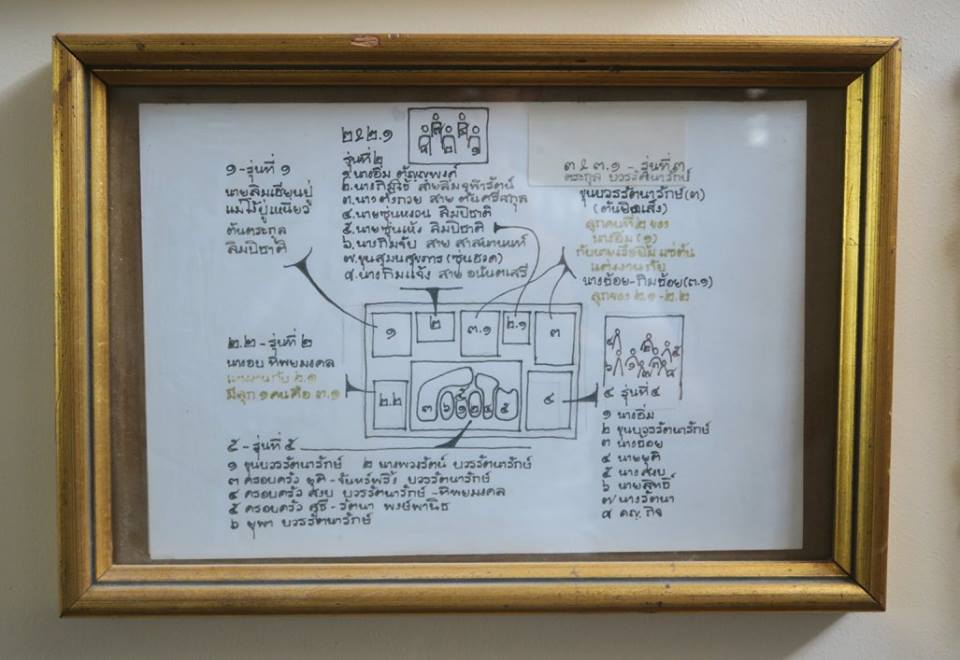 ๑-รุ่นที่ ๑
นายลิมเฮียนปู่
แม่โม้ปู่เหนี่ยว
ต้นตระกูล
ลิมปิชาติ
๒ & ๒.๑
รุ่นที่ ๒
๑.นางอิ่ม
๓.นางตั้งกวย สาย ตันศรีสกุล
๔.นายซุ่นหงวน ลิมปิชาติ
๕.นายซุ่นเห้ง ลิมปิชาติ
๖.นางกิมจับ สาย
๘.นางกิมแจ้ง สาย อนันตเสรี
๓ & ๓.๑ - รุ่นที่ ๓
ตระกูล บวรรัตนารักษ์
ขุนบวรรัตนารักษ์(๓)
ลูกคนที่ ๒ ของ
นางอิ่ม (๑)
แต่งงานกับ
นางช้อย-กิมช้อย(๓.๑)
ลูกของ ๒.๑ - ๒.๒
๑
๒
๓.๑
๒.๑
๓
๒.๒
๔
๓ ๖ ๑ ๒ ๔ ๕
๒.๒ - รุ่นที่ ๒
นางอบ ทิพยมงคล
แต่งงานกับ ๒.๑
มีลูก ๑ คนคือ ๓.๑
๔ รุ่นที่ ๔
๑ นางอิ่ม
๒ ขุนบวรรัตนารักษ์
๓ นางช้อย
๔ นายยุติ
๕ นางสงบ
๖ นายสุทธิ์
๗ นางรัตนา
๘ ดญ. กิจ
๕ - รุ่นที่ ๕
๑ ขุนบวรรัตนารักษ์ ๒ นางพวงรัตน์ บวรรัตนารักษ์
๓ ครอบครัว ยุติ - จันทร์พริ้ง บวรรัตนารักษ์
๔ ครอบครัว สงบ บวรรัตนารักษ์ - ทิพยมงคล
๕ ครอบครัว สุธี - รัตนา พงษ์พานิช
๖ ยุพา บวรรัตนารักษ์